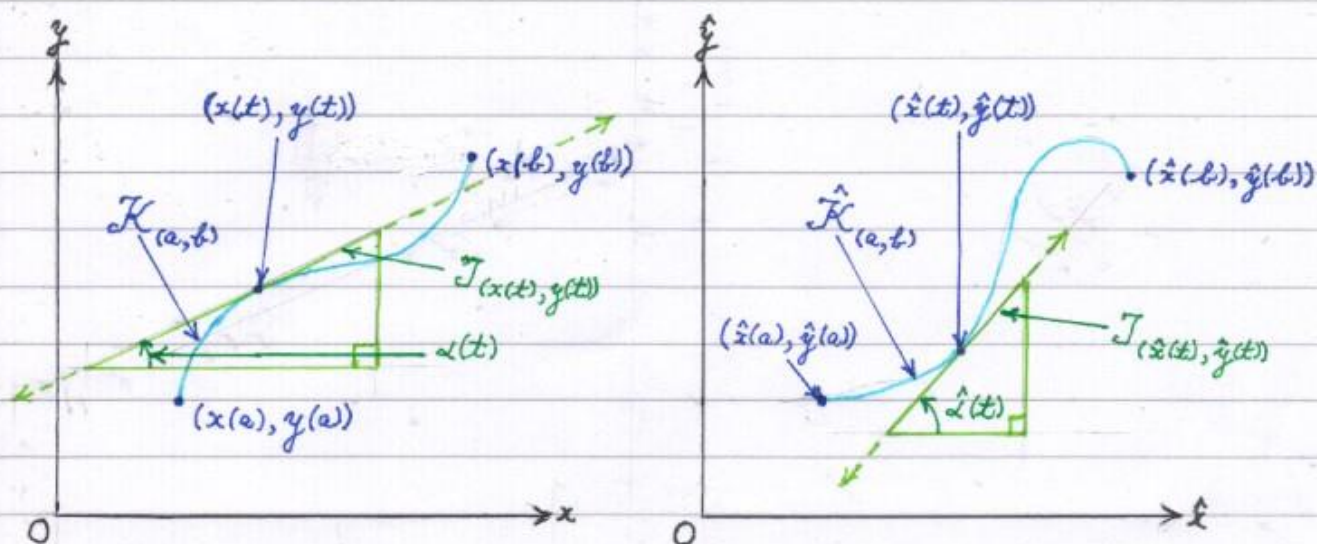 y
(x(t), y(t))
(x(b), y(b))
𝒦(a,b)
𝒯(x(t), y(t))
α(t)
(x(a), y(a))
O
x
ŷ
(x̂(t), ŷ(t))
(x̂(b), ŷ(b))
𝒦̂(a,b)
(x̂(a), ŷ(a))
𝒯(x̂(t), ŷ(t))
α̂(t)
O
x̂